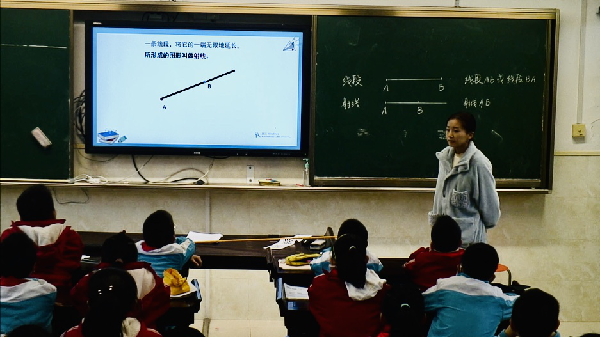 一条线段，将它的一端无限地延长，
所形成的图形叫做射线。
A
B
线段
A
B
线段AB或线段BA
射线
A
B
射线AB